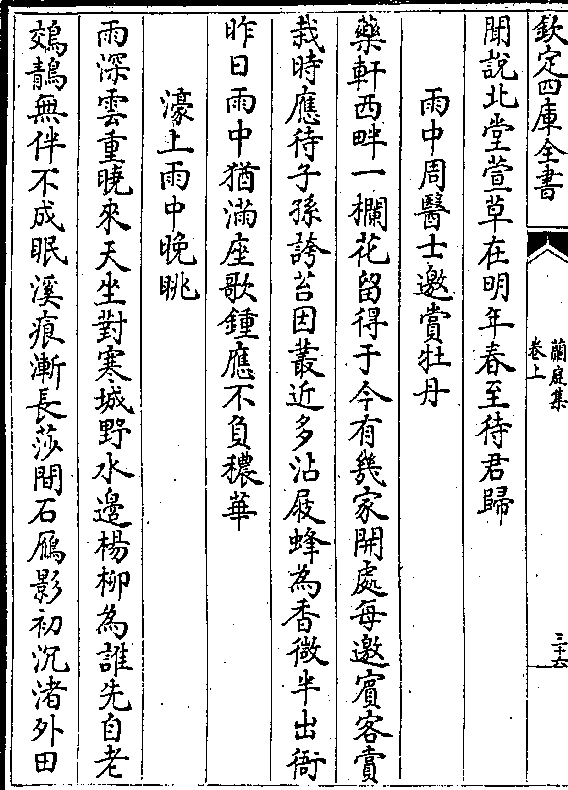 欽定四庫全書
蘭庭集
卷上
三十六
聞說北堂萱草在明年春至待君歸
雨中周醫士邀賞牡丹
藥軒西畔一欄花留得于今有幾家開處每邀賓客賞
栽時應待子孫誇苔因叢近多沾屐蜂為香微半出衙
昨日雨中猶滿座歌鍾應不負穠華
濠上雨中晚眺
雨深雲重曉來天坐對寒城野水邊楊柳為誰先自老
鵁鶄無伴不成眠溪痕漸長莎間石鴈影初沉渚外田